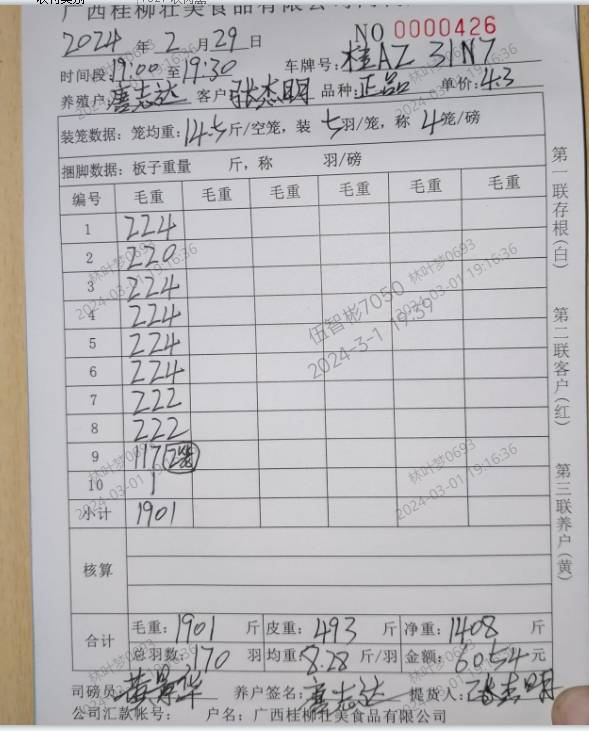 广西桂柳壮美食品有限公司
2024 年 2 月 29 日 NO 0000426
时间段: 19:00 至 19:30 车牌号: 桂AZ 31N7
养殖户: 唐志达 客户 张杰明 品种: 正品 单价: 4.3
装笼数据: 笼均重: 14.5 斤/空笼, 装 5 羽/笼, 称 4 笼/磅
捆脚数据: 板子重量 斤, 称 羽/磅
编号 毛重 毛重 毛重 毛重 毛重 毛重
1 224
2 220
3 224
4 224
5 224
6 224
7 222
8 222
9 117
10
小计 1901
核算
合计 毛重: 1901 斤 皮重: 493 斤 净重: 1408 斤
总羽数: 170 羽 均重: 8.28 斤/羽 金额: 6054 元
司磅员 养户签名: 唐志达 提货人: 张杰明
公司汇款帐号: 户名: 广西桂柳壮美食品有限公司
第一联存根(白)
第二联客户(红)
第三联养户(黄)
林叶梦0693
2024-03-01 19:16:36
林叶梦0693
2024-03-01 19:16:36
伍智彬7050
2024-3-1 19:39
林叶梦0693
2024-03-01 19:16:36
林叶梦0693
2024-03-01 19:16:36